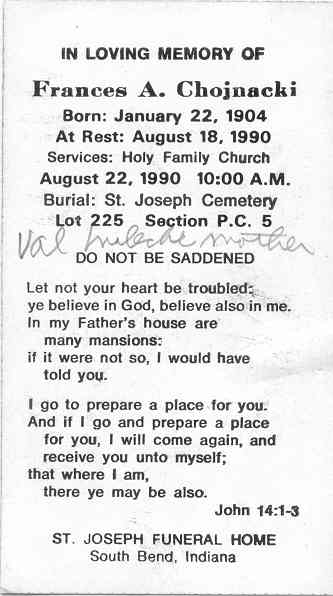 IN LOVING MEMORY OF
Frances A. Chojnacki
Born: January 22, 1904
At Rest: August 18, 1990
Services: Holy Family Church
August 22, 1990 10:00 A.M.
Burial: St. Joseph Cemetery
Lot 225 Section P.C. 5
Val mother
DO NOT BE SADDENED
Let not your heart be troubled:
ye believe in God, believe also in me.
In my Father's house are
many mansions:
if it were not so, I would have
told you.
I go to prepare a place for you.
And if I go and prepare a place
for you, I will come again, and
receive you unto myself;
that where I am,
there ye may be also.
John 14:1-3
ST. JOSEPH FUNERAL HOME
South Bend, Indiana